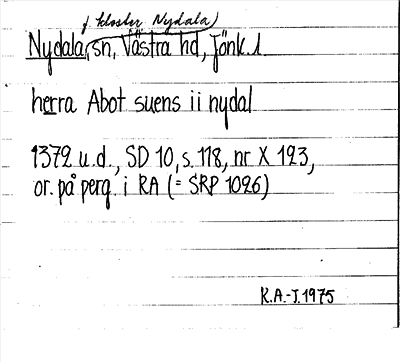 f kloster Nydala
Nydala, sn, Västra hd, Jönk. l
herra Abot suens ii nydal
1372 u.d., SD 10, s. 118, nr X 123,
or. på perg. i RA (= SRP 1026)
R.A.-J. 1975